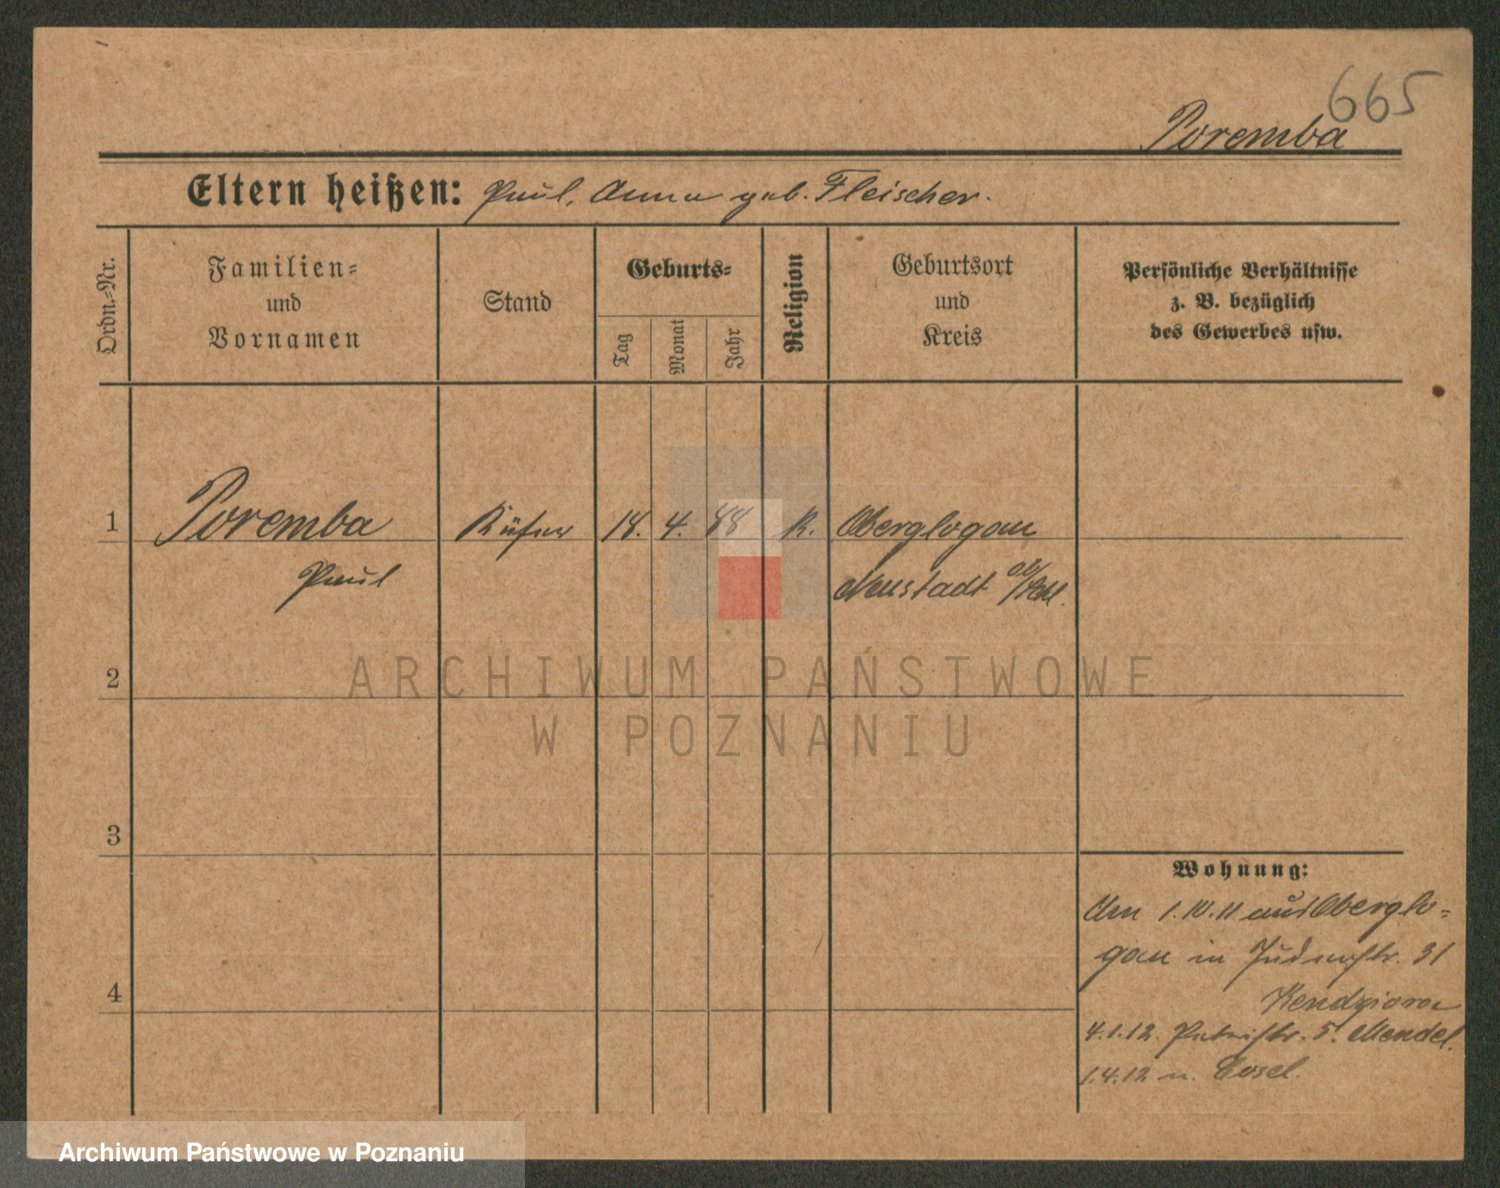 665
Poremba
Eltern heißen: Paul, Anna geb. Fleischer.
Ordn.-Nr.
Familien-
und
Vornamen
Stand
Geburts-
Tag
Monat
Jahr
Religion
Geburtsort
und
Kreis
Persönliche Verhältnisse
z. B. bezüglich
des Gewerbes usw.
1 Poremba Küfer 18. 4. 88 K. Oberglogau
Paul Neustadt ob/Schl.
2
3
4
Wohnung:
Am 1.10.11 aus Oberglo-
gau in Judenstr. 31
4.1.12. 5. Mendel.
1.4.12 n. Cosel.
ARCHIWUM PAŃSTWOWE
W POZNANIU
Archiwum Państwowe w Poznaniu